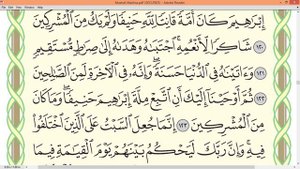 Mushaf Madina.pdf (SECURED) - Adobe Reader
File Edit View Window Help
إِبْرَٰهِيمَ كَانَ أُمَّةً قَانِتًا لِّلَّهِ حَنِيفًا وَلَمْ يَكُ مِنَ ٱلْمُشْرِكِينَ
١٢٠ شَاكِرًا لِّأَنْعُمِهِ ۚ ٱجْتَبَىٰهُ وَهَدَىٰهُ إِلَىٰ صِرَٰطٍ مُّسْتَقِيمٍ
١٢١ وَءَاتَيْنَٰهُ فِى ٱلدُّنْيَا حَسَنَةً ۖ وَإِنَّهُۥ فِى ٱلْءَاخِرَةِ لَمِنَ ٱلصَّٰلِحِينَ
١٢٢ ثُمَّ أَوْحَيْنَآ إِلَيْكَ أَنِ ٱتَّبِعْ مِلَّةَ إِبْرَٰهِيمَ حَنِيفًا ۖ وَمَا كَانَ
مِنَ ٱلْمُشْرِكِينَ ١٢٣ إِنَّمَا جُعِلَ ٱلسَّبْتُ عَلَى ٱلَّذِينَ ٱخْتَلَفُوا۟
فِيهِ ۚ وَإِنَّ رَبَّكَ لَيَحْكُمُ بَيْنَهُمْ يَوْمَ ٱلْقِيَٰمَةِ فِيمَا